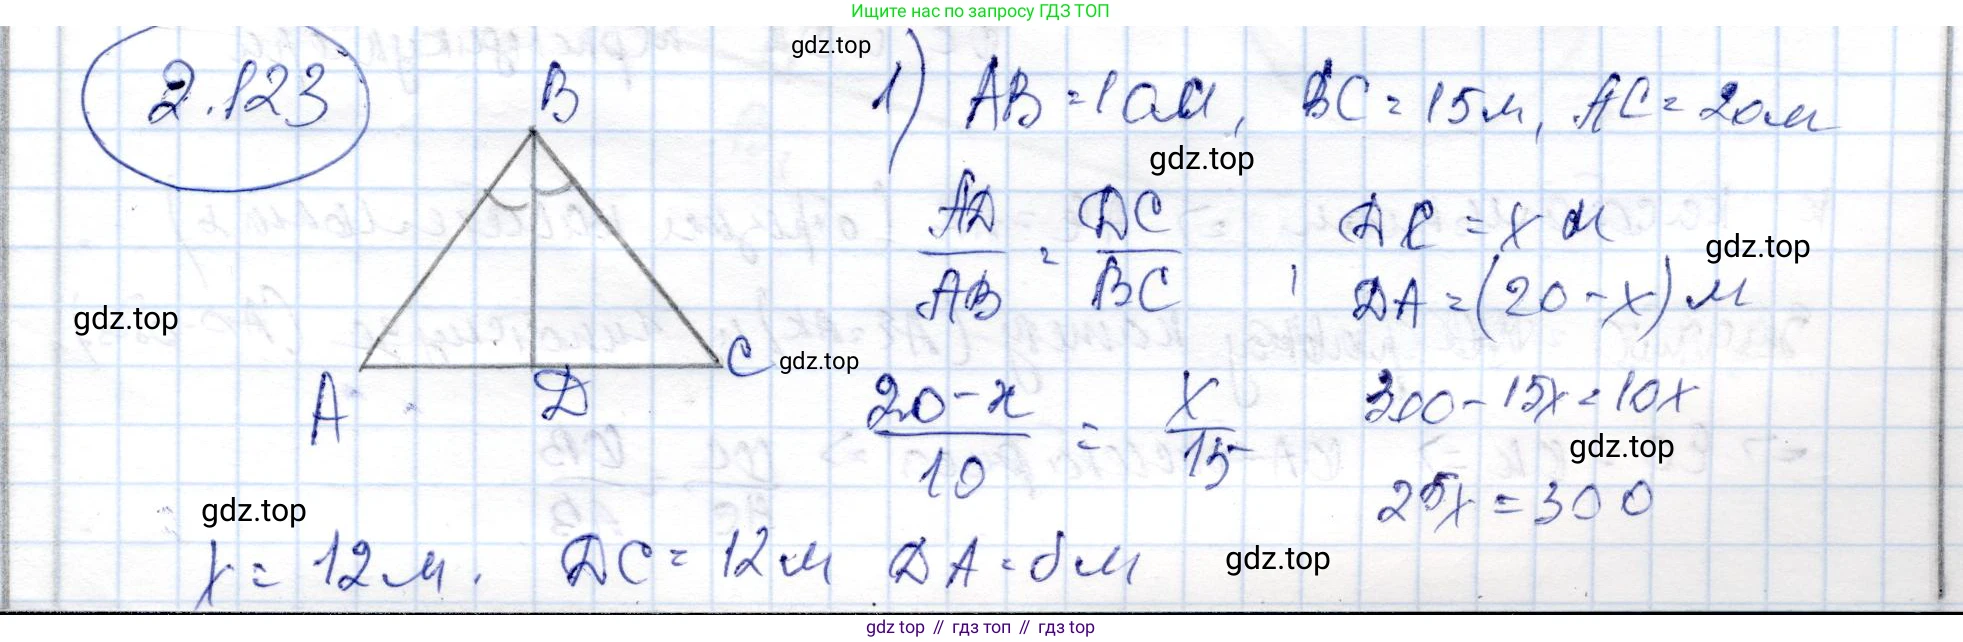 Ищите нас по запросу ГДЗ ТОП
2.123
B
A
D
C
1) AB = 10 м, BC = 15 м, AC = 20 м
AD/AB = DC/BC, DC = x м
DA = (20 - x) м
(20 - x)/10 = x/15
300 - 15x = 10x
25x = 300
x = 12 м. DC = 12 м DA = 8 м
gdz.top
gdz.top
gdz.top
gdz.top
gdz.top
gdz.top
gdz.top
gdz.top
gdz top // гдз топ // гдз top